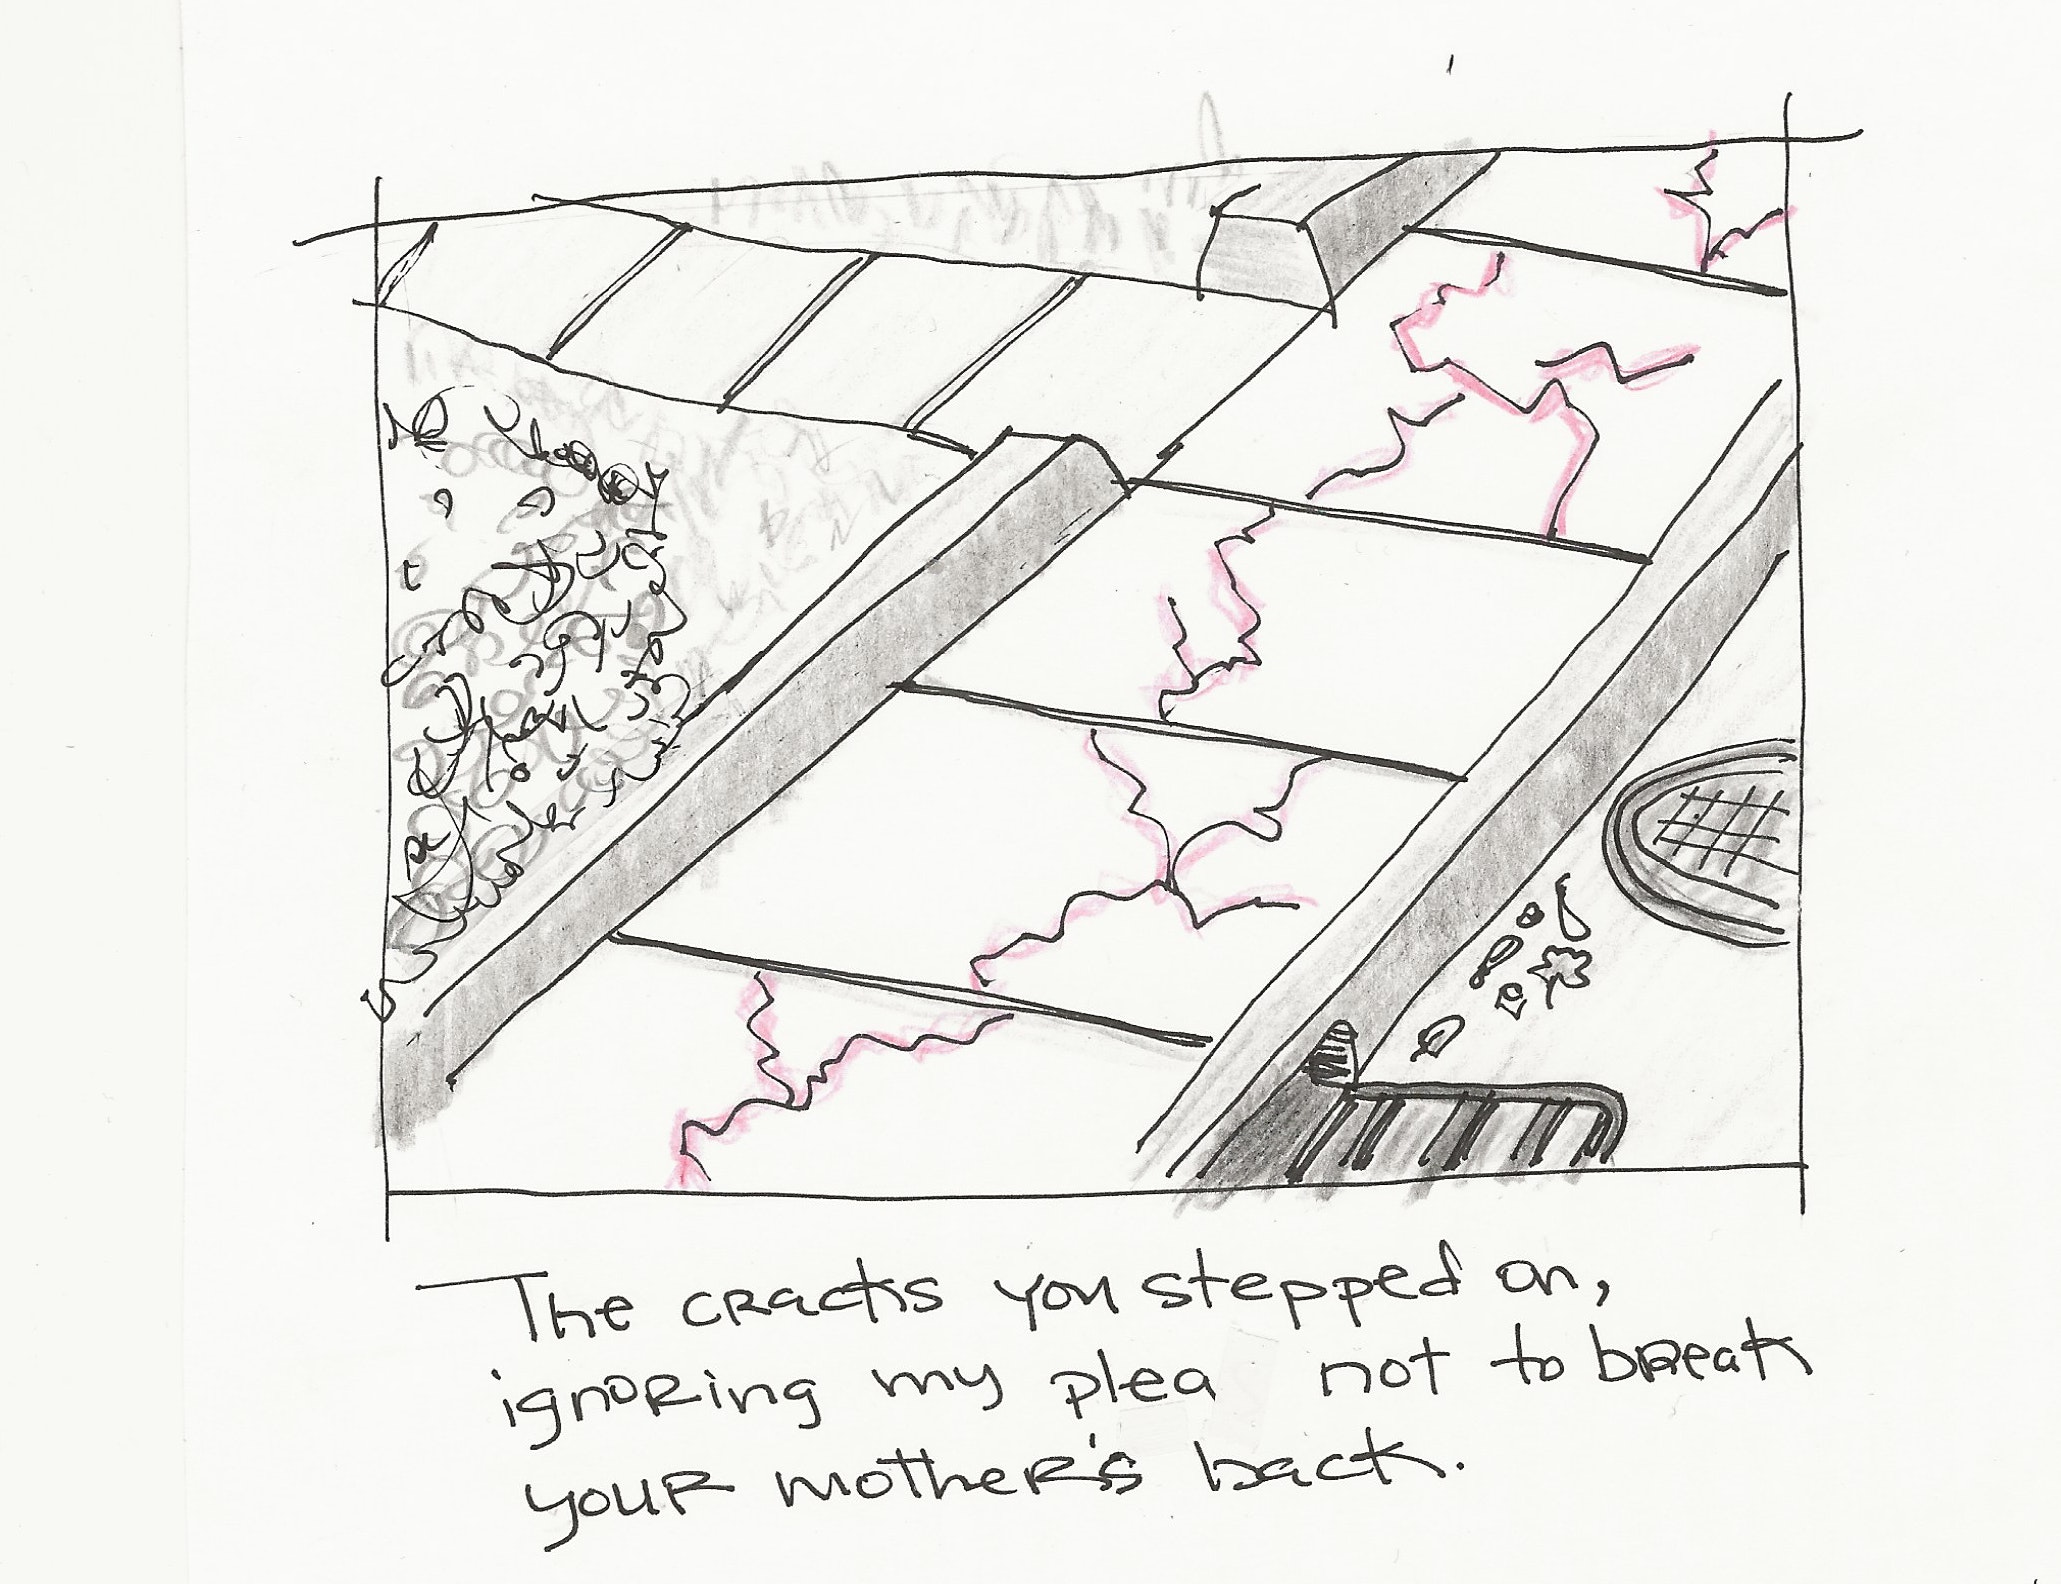 The cracks you stepped on,
ignoring my plea not to break
your mother's back.